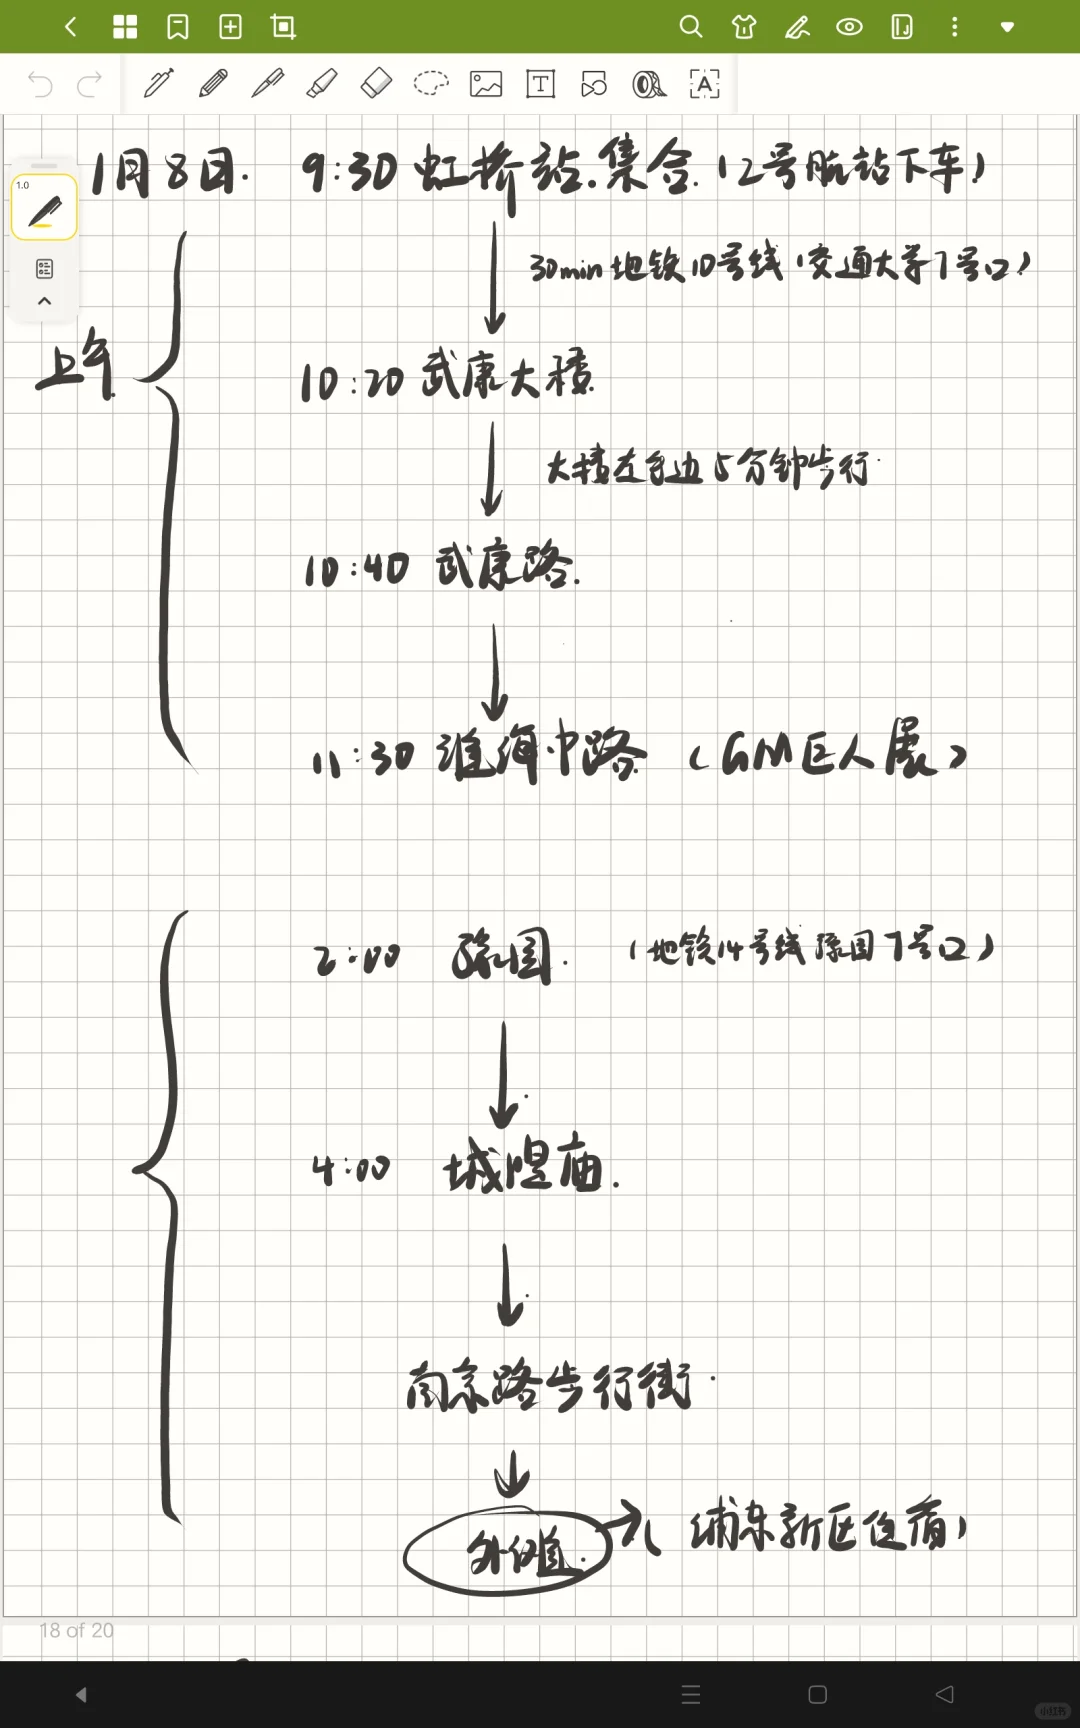 1.0
1月8日. 9:30 虹桥站.集合.(2号航站下车)
30min地铁10号线(交通大学7号口)
上午
10:20 武康大楼
大楼左手边5分钟步行
10:40 武康路.
11:30 淮海中路 (GM巨人展)
2:00 豫园. (地铁14号线豫园7号口)
4:00 城隍庙.
南京路步行街
外滩. (浦东新区住宿)
18 of 20
小红书